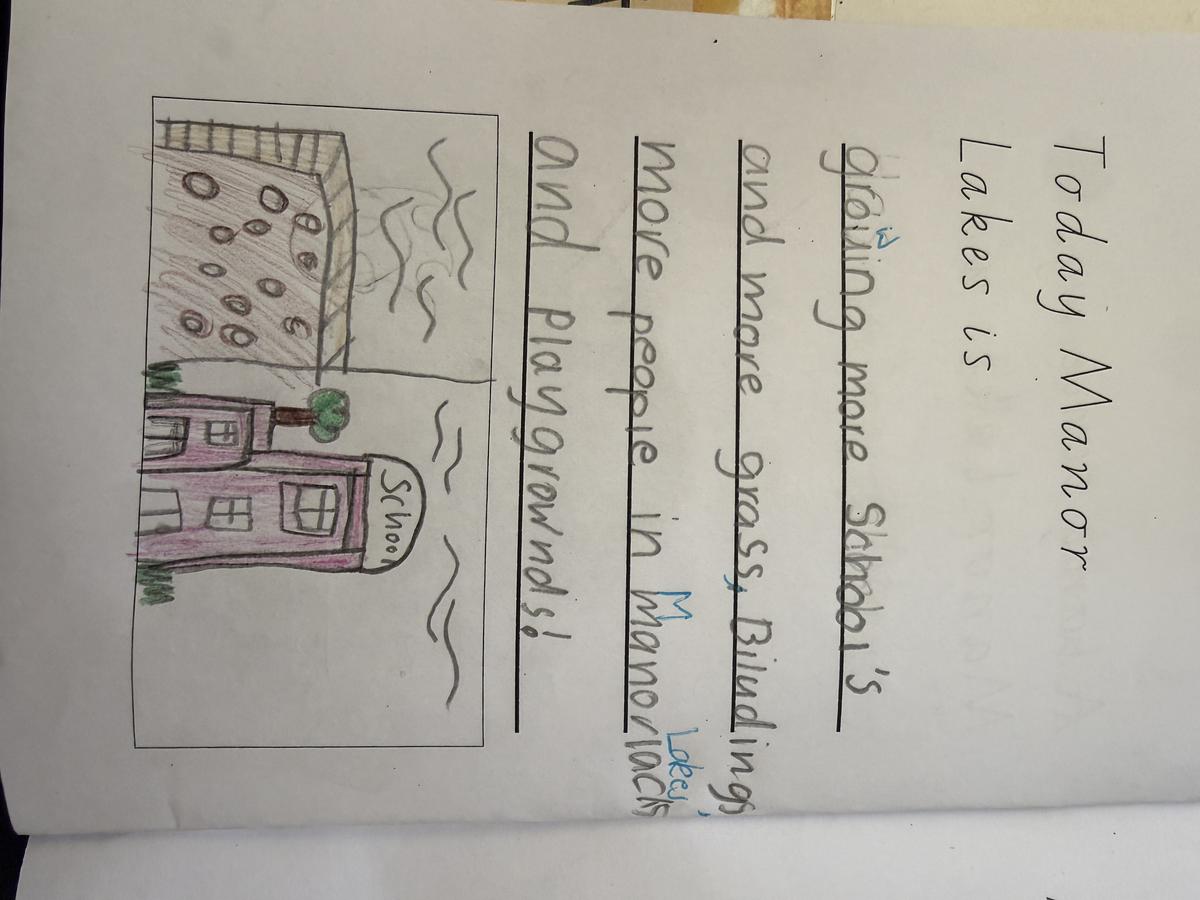 Today Manor
Lakes is
growing more School's
w
and more grass, Biludings
more people in Manorlacks
M Lakes,
and playgrownds!
School